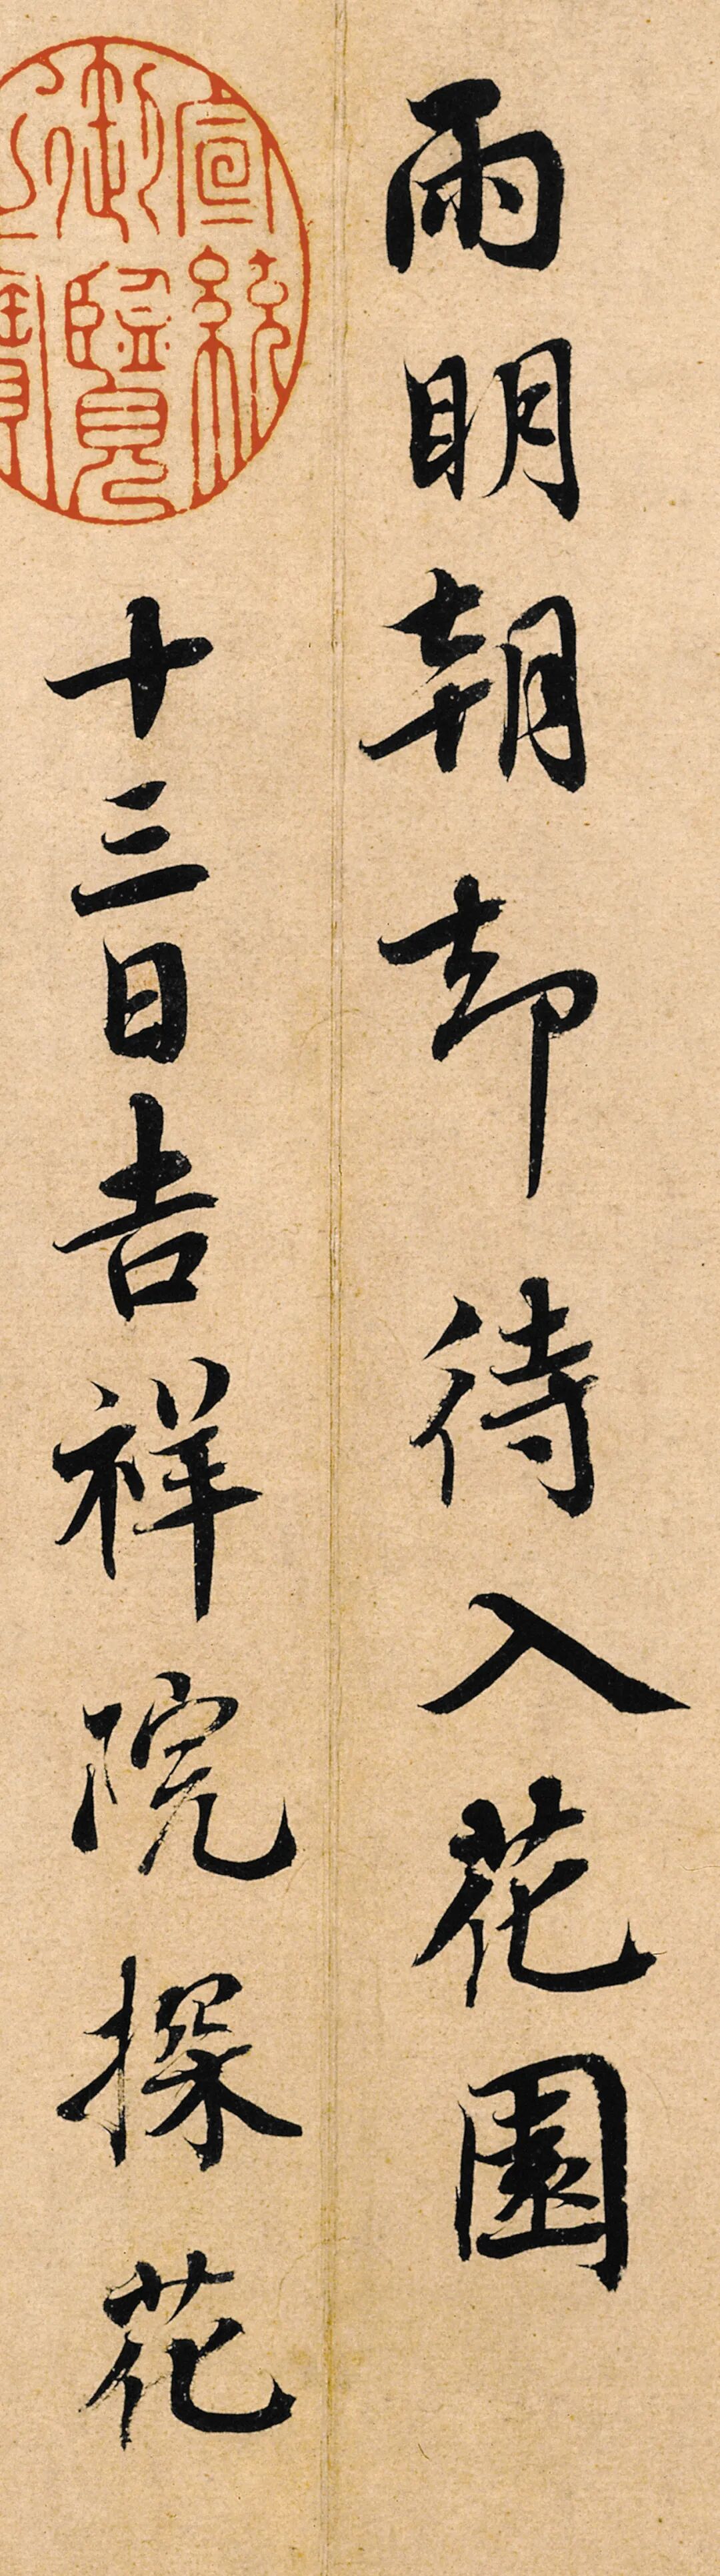 雨明朝却待入花園
十三日吉祥院探花
宣統
御覽
之寶